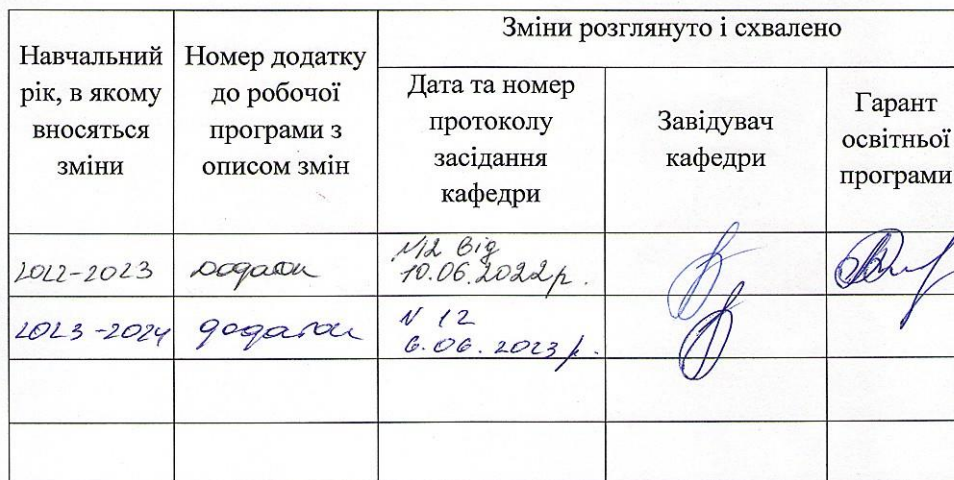 Навчальний рік, в якому вносяться зміни
Номер додатку до робочої програми з описом змін
Зміни розглянуто і схвалено
Дата та номер протоколу засідання кафедри
Завідувач кафедри
Гарант освітньої програми
2022-2023 додаток №12 від
10.06.2022р.
2023-2024 додаток N 12
6.06.2023р.